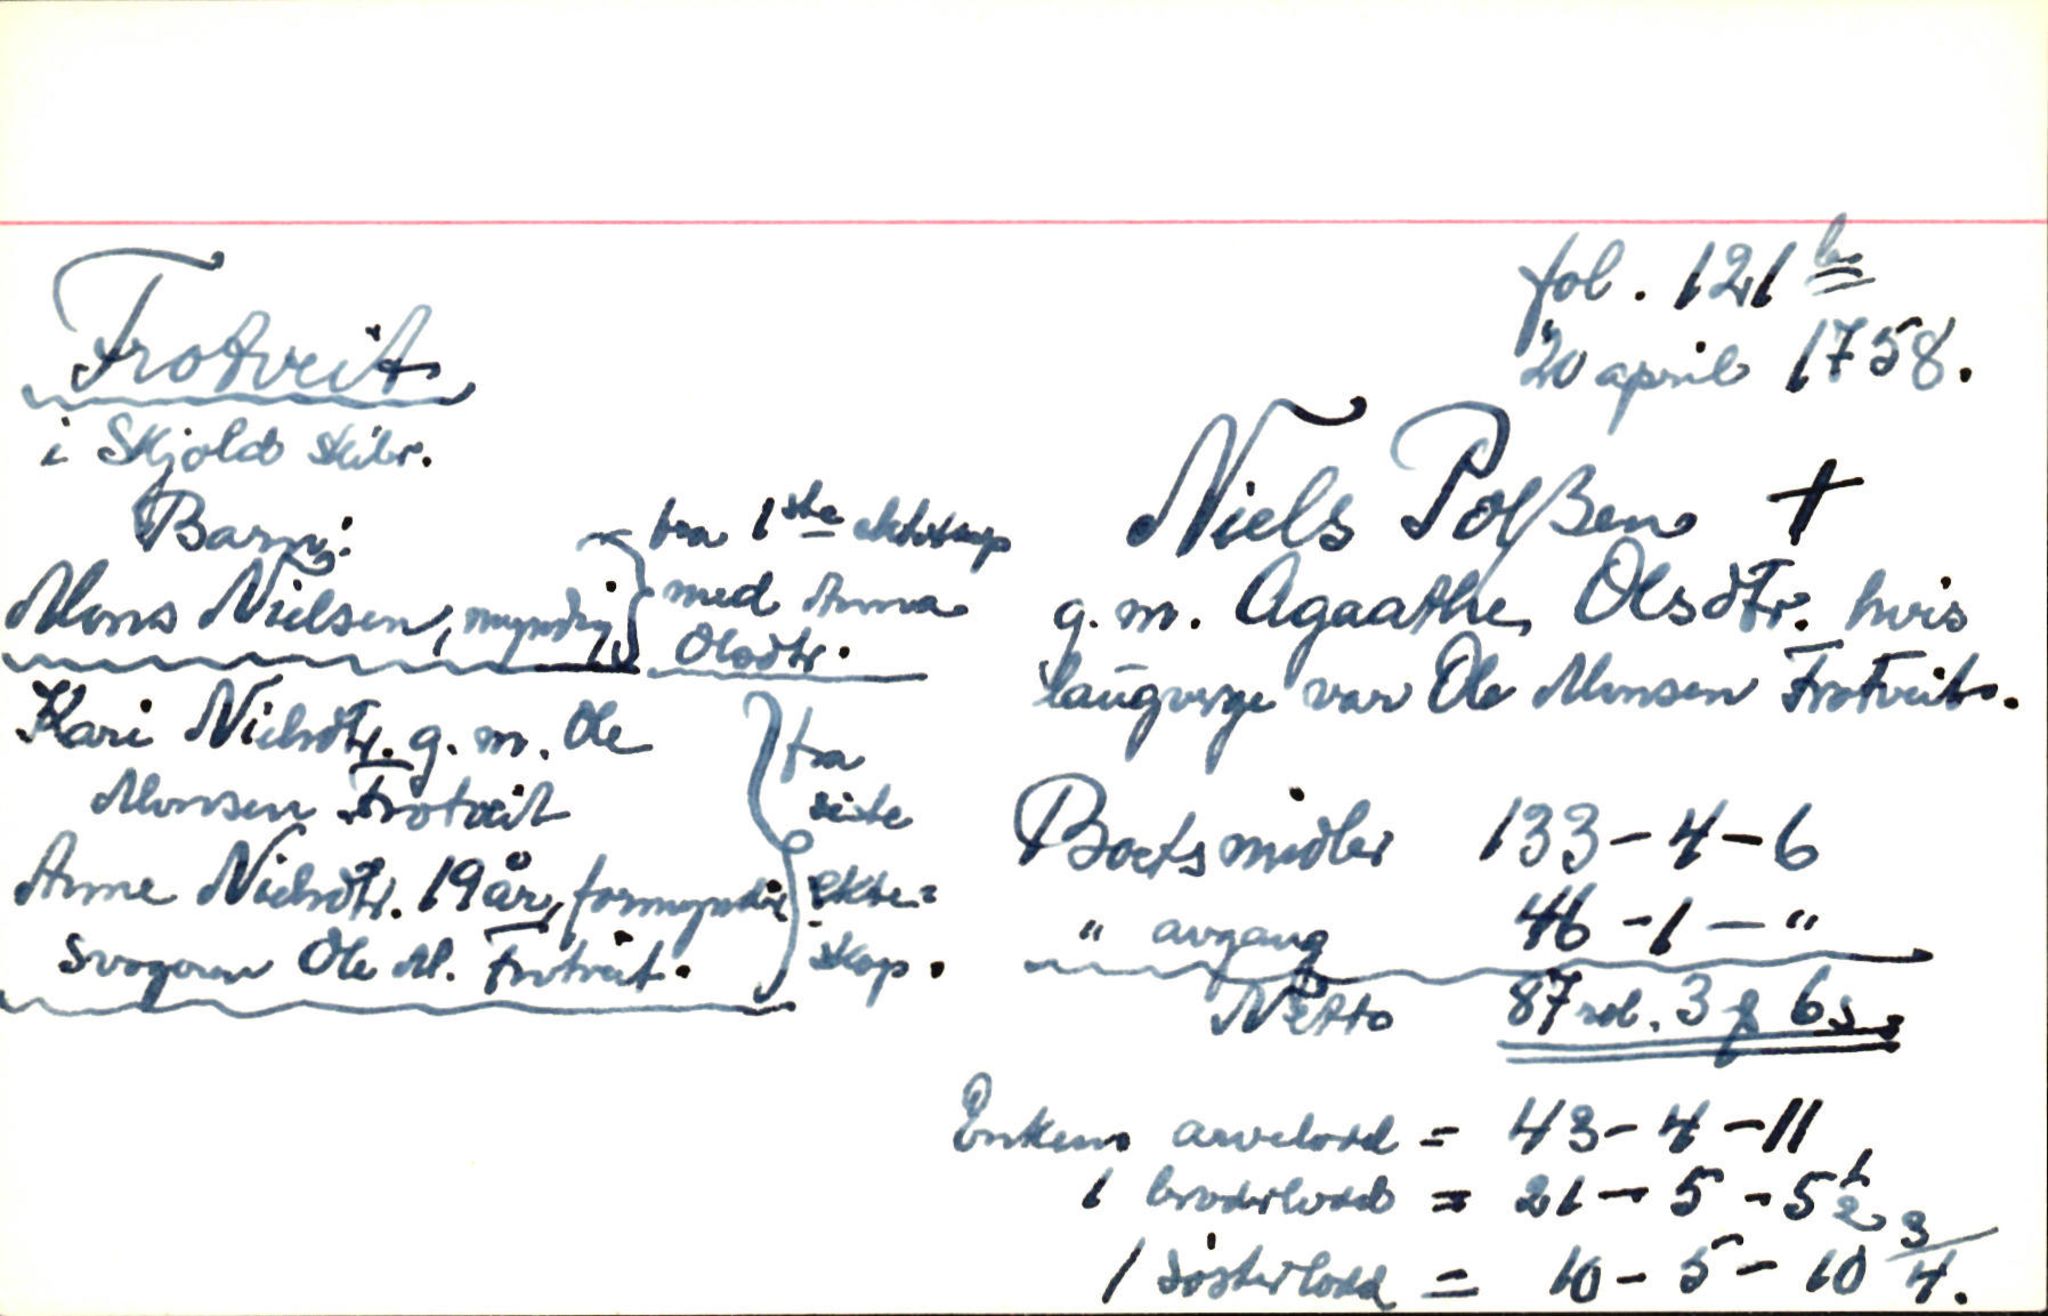 fol. 121 b
20 april 1758.
Frotveit
i Skjold skibr.
Niels Polßen †
g. m. Agaathe Olsdtr. hvis
laugverge var Ole Monsen Frotveit.
Barn:
Mons Nielsen, myndig,
fra 1ste ektskap
med Anna
Olsdtr.
Kari Nielsdtr. g. m. Ole
Monsen Frotveit
Anne Nielsdtr. 19 år, formynder
svogeren Ole M. Frotveit.
fra
siste
ekte=
skap.
Boets midler 133-4-6
" avgang 46-1-"
Netto 87 rdl. 3 ꝑ 6 s.
Enkens arvelodd = 43-4-11
1 broderlodd = 21-5-5 1/2
1 søsterlodd = 10-5-10 3/4.